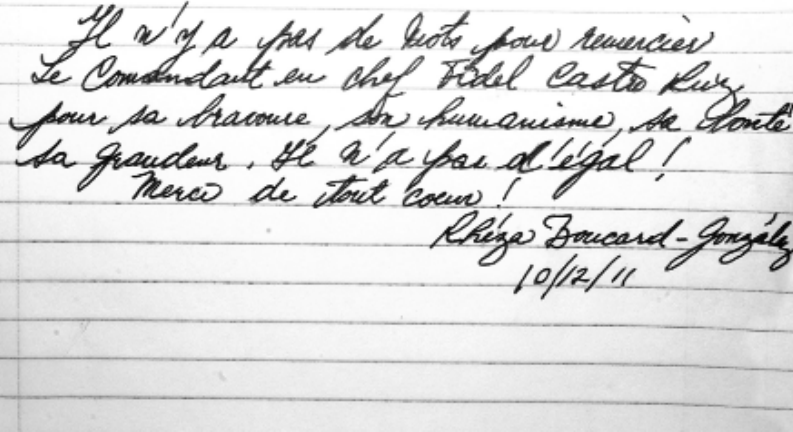 Il n'y a pas de mots pour remercier
Le Comandant en chef Fidel Castro Ruz
pour sa bravoure, son humanisme, sa bonté
sa grandeur. Il n'a pas d'égal !
Merci de tout coeur !
Rhéza Boucard-González
10/12/11